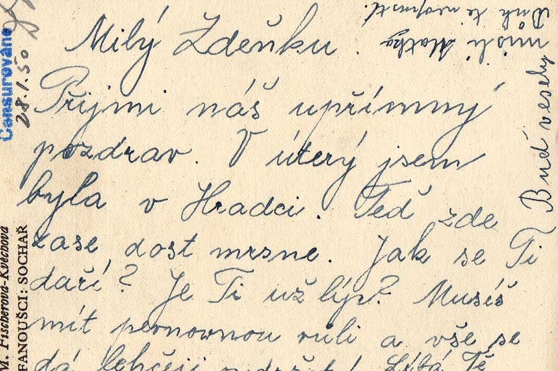 Milý Zdeňku.
Přijmi náš upřímný
pozdrav. V úterý jsem
byla v Hradci. Teď zde
zase dost mrzne. Jak se Ti
daří? Je Ti už líp? Musíš
mít pevnou vůli a vše se
dá lehčeji Líbá Tě
Buď veselý
myslí Matka
Bůh Tě neopustí.
Censurováno
28.1.50
M. Fischerová-Kvěchová
FANOUŠCI: SOCHAŘ